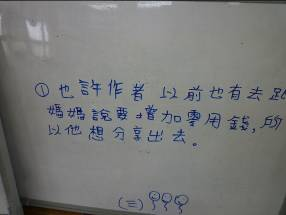 ① 也許作者以前也有去跟
媽媽說要增加零用錢,所
以他想分享出去。
(三)